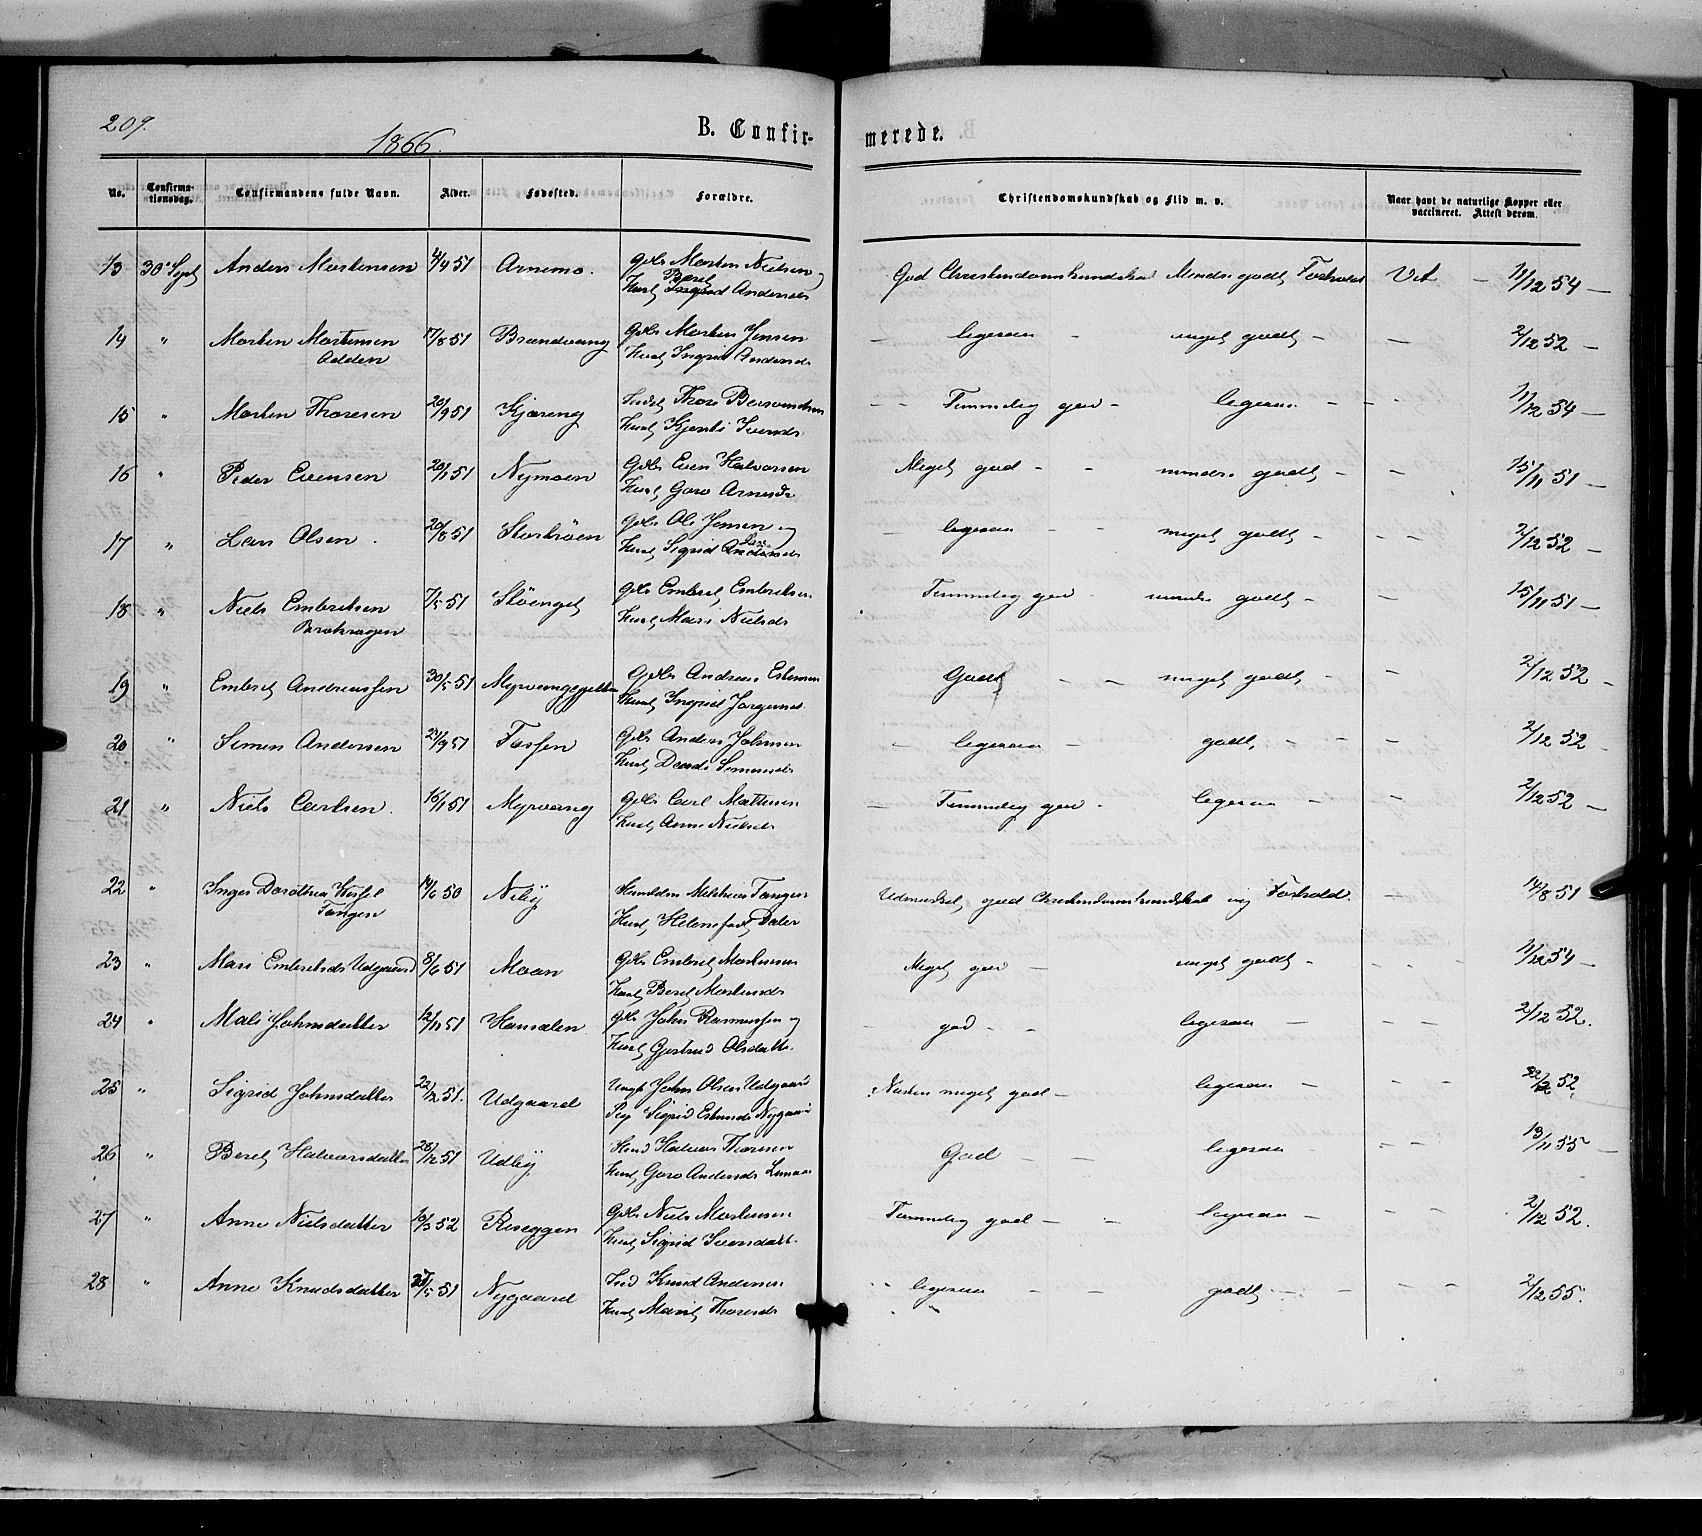 209.
1866.
B. Confir-
merede.
No.
Confirma-
tionsdag.
Confirmandens fulde Navn.
Alder.
Fødested.
Forældre.
Christendomskundskab og Flid m. v.
Naar havt de naturlige Kopper eller
vaccineret. Attest derom.
13 30 Sept Anders Mortensen 4/9 51 Arnemo. Gbr Morten Nielsen
Hust Beret Andersdr
God Christendomskundskab Mindre godt Forhold Vt - 11/12 54 -
14 " Morten Mortensen 17/8 51 Brandvang Gbr Morten Jensen
Odden Hust Ingrid Andersd
- ligesaa - meget godt - 2/12 52 -
15 " Morten Thoresen 20/9 51 Kjæreng Thore
Hust Kjersti Svends
- - Temmelig god - ligesaa - - - 11/12 54 -
16 " Peder Evensen 20/11 51 Nymoen Gbr Even Halvorsen
Hust Goro Arnesdr
Meget god - - mindre godt - - 15/11 51 -
17 " Lars Olsen. 20/8 51 Storbrøen Gbr Ole Jensen og
Hust Sigrid
- ligesaa - - meget godt - - - 2/12 52 -
18 " Niels Embretsen 7/5 51 Støenget Gbr Embret Embretsen
Hust Mari Nielsdr
Temmelig god - mindre godt - - 15/11 51 -
19 " Embret Andreassen 30/5 51 Gbr Andreas Estensen
Hust Ingrid Jørgensd.
Godt - - meget godt - - 2/12 52 -
20 " Simen Andersen 21/9 51 Fossen Gbr Anders Johnsen
Hust Dordi Simensdr
- ligesaa - godt, - - - 2/12 52
21 " Niels Carlsen. 16/11 51 Myrvang Gbr Carl
Hust Anne Nielsdr
- Temmelig god - ligesaa - - 2/12 52 -
22 " Inger Dorothea 14/6 50 Neby Tangen
Tangen Hust Helene født
Udmærket god Christendomskundskab og Forhold. 14/8 51
23 " Mari Embretsdr Udgaard 8/6 51 Moan Gbr Embret Mortensen
Hust Beret Mortensdr
Meget god - meget godt - - - - 11/12 54 -
24 " Mali Johnsdatter 12/11 51 Hansælen Gbr John Rasmussen og
Hust Gjertrud Olsdatt.
god - - ligesaa - - - 2/12 52.
25 " Sigrid Johnsdatter 22/12 51. Udgaard Ungk John Olsen Udgaard
Pig Sigrid Estensdr Nygaard
Næsten meget god - ligesaa - - 22/12 52,
26 " Beret Halvorsdatter 28/12 51 Udby Halvor Thoresen
Hust Goro Andersdr
God - - ligesaa - - 13/11 55 -
27 " Anne Nielsdatter 16/3 52 Røseggen Gbr Niels Mortensen
Hust Sigrid Svensdatt.
Temmelig god - - ligesaa - - - 2/12 52.
28 " Anne Knudsdatter /5 51 Nygaard Ind Knud Andersen
Hust Marit Thoresdr
" ligesaa - - godt - - - - 2/12 55.